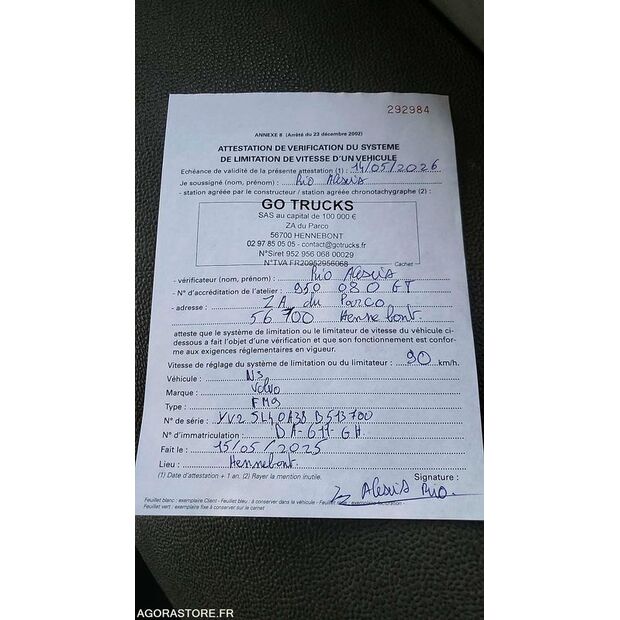 292984
ANNEXE 8 (Arrêté du 23 décembre 2002)
ATTESTATION DE VERIFICATION DU SYSTEME
DE LIMITATION DE VITESSE D'UN VEHICULE
Echéance de validité de la présente attestation (1) : 14/05/2026
Je soussigné (nom, prénom) : Rio Alexis
- station agréée par le constructeur / station agréée chronotachygraphe (2) :
GO TRUCKS
SAS au capital de 100 000 €
ZA du Parco
56700 HENNEBONT
02 97 85 05 05 - contact@gotrucks.fr
N°Siret 952 956 068 00029
N°TVA FR20952956068
Cachet
- vérificateur (nom, prénom) : Rio Alexis
- N° d'accréditation de l'atelier : 950 080 GT
- adresse : ZA du Parco
56 700 Hennebont.
atteste que le système de limitation ou le limitateur de vitesse du véhicule ci-
dessous a fait l'objet d'une vérification et que son fonctionnement est confor-
me aux exigences réglementaires en vigueur.
Vitesse de réglage du système de limitation ou du limitateur : 90 km/h.
Véhicule : N3
Marque : Volvo
Type : FM9
N° de série : YV2 5L40A3B B513700
N° d'immatriculation : DA-611-GH
Fait le : 15/05/2025
Lieu : Hennebont.
(1) Date d'attestation + 1 an. (2) Rayer la mention inutile.
Signature :
Alexis Rio.
Feuillet blanc : exemplaire Client - Feuillet bleu : à conserver dans le véhicule - Feuillet
Feuillet vert : exemplaire fixe à conserver sur le carnet
AGORASTORE.FR